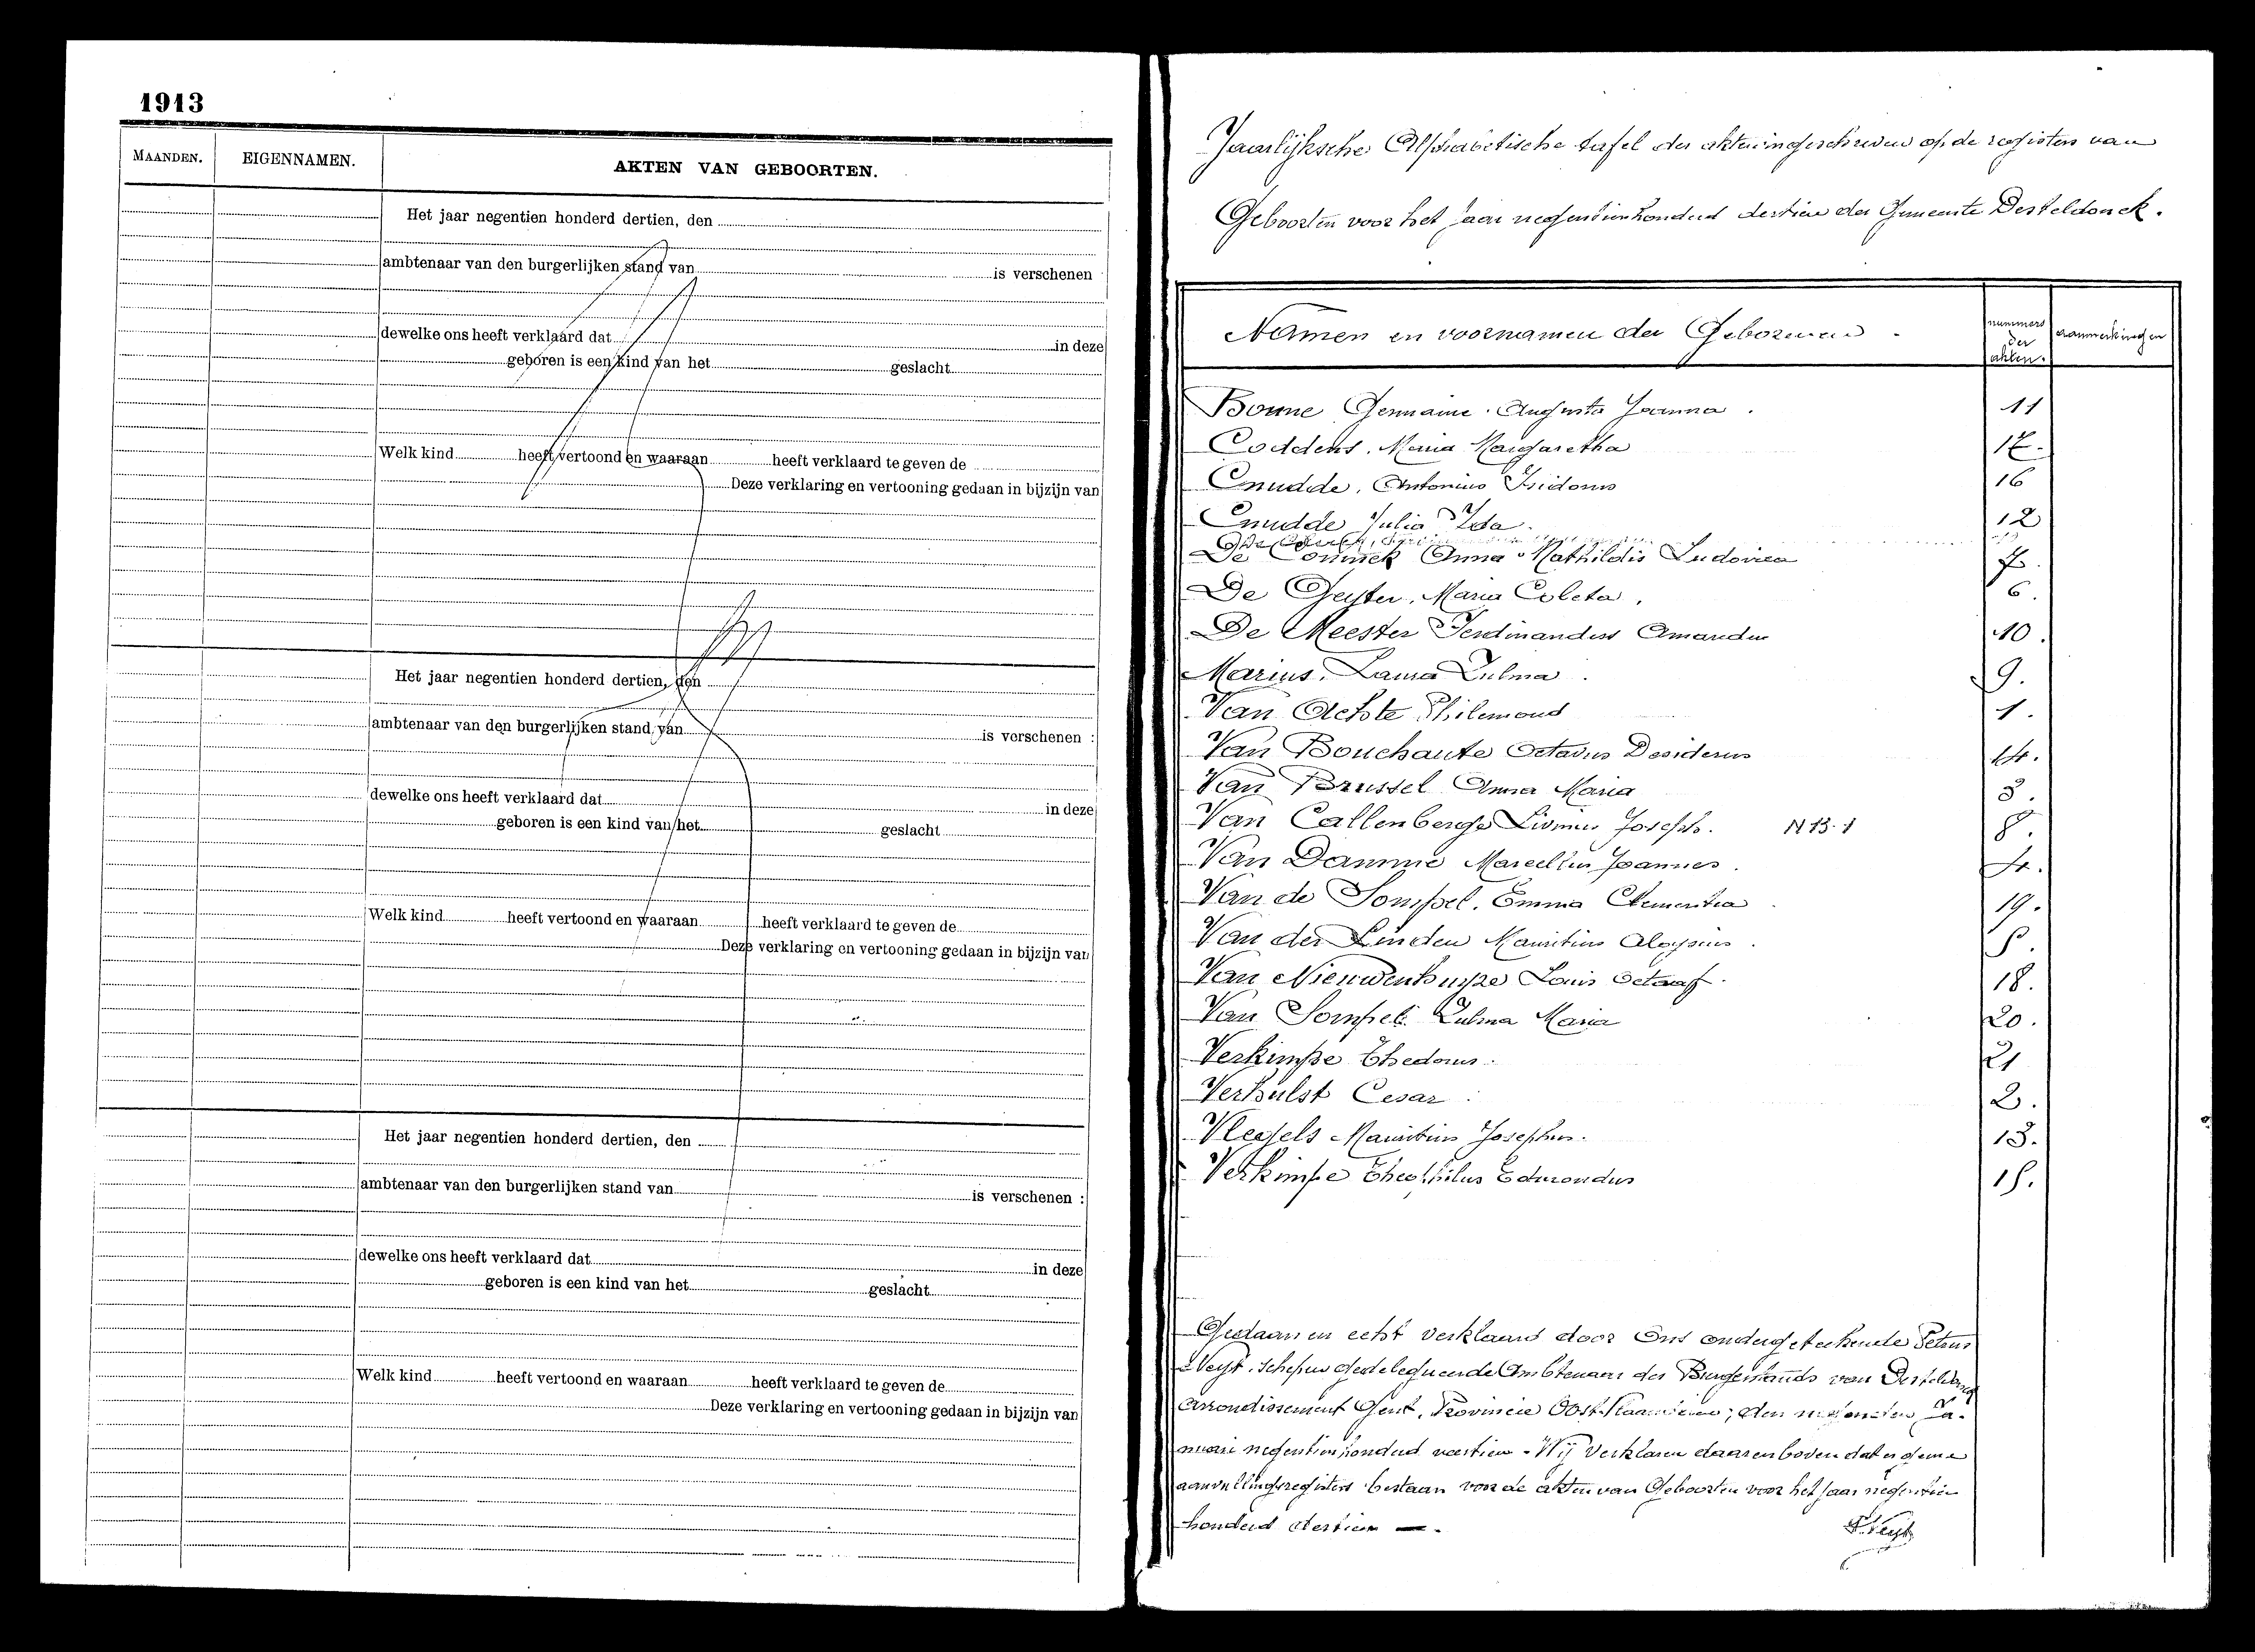 1913
MAANDEN.
EIGENNAMEN.
AKTEN VAN GEBOORTEN.
Het jaar negentien honderd dertien, den
ambtenaar van den burgerlijken stand van is verschenen
dewelke ons heeft verklaard dat in deze
geboren is een kind van het geslacht
Welk kind heeft vertoond en waaraan heeft verklaard te geven de
Deze verklaring en vertooning gedaan in bijzijn van
Het jaar negentien honderd dertien, den
ambtenaar van den burgerlijken stand van is verschenen :
dewelke ons heeft verklaard dat in deze
geboren is een kind van het geslacht
Welk kind heeft vertoond en waaraan heeft verklaard te geven de
Deze verklaring en vertooning gedaan in bijzijn van
Het jaar negentien honderd dertien, den
ambtenaar van den burgerlijken stand van is verschenen :
dewelke ons heeft verklaard dat in deze
geboren is een kind van het geslacht
Welk kind heeft vertoond en waaraan heeft verklaard te geven de
Deze verklaring en vertooning gedaan in bijzijn van
Jaarlijksche Alphabetische tafel der akten ingeschreven op de registers van
Geboorten voor het jaar negentienhonderd dertien der Gemeente Desteldonck.
Namen en voornamen der Geborenen
nummers der akten.
aanmerkingen
Bonne Germaine Augusta Joanna. 11
Coddens, Maria Margaretha 17.
Cnudde, Antonius Isidorus 16
Cnudde Julia Ida. 12
De Coninck Anna Mathildis Ludovica 7.
De Geyter, Maria Coleta. 6.
De Meester Ferdinandus Amandus 10.
Marius, Laura Zulma. 9.
Van Achte Philemond 1.
Van Bouchaute Octavus Desiderius 14.
Van Brussel Anna Maria 3.
Van Callenberge Livinus Joseph. N 13. 1 8.
Van Damme Marcellin Joannes. 4.
Van de Sompel, Emma Clementia 19.
Van der Linden Mauritius Aloysius. 5.
Van Nieuwenhuyse Louis Octaaf. 18.
Van Sompel Zulma Maria 20.
Verkimpe Thedorus. 21
Verhulst Cesar. 2.
Vlegels Mauritius Josephus. 13.
Verkimpe Theophilus Edmondus 15.
Gedaan en echt verklaard door Ons ondergeteekende Petrus
Neyt, schepen gedelegueerde Ambtenaar des Burgerstands van Desteldonck
Arrondissement Gent, Provincie Oost-Vlaanderen; den negensten Ja-
nuari negentienhonderd veertien. Wij verklaren daarenboven dat er geene
aanvullingsregisters bestaan voor de akten van Geboorten voor het jaar negentien
honderd dertien —.
P. Neyt